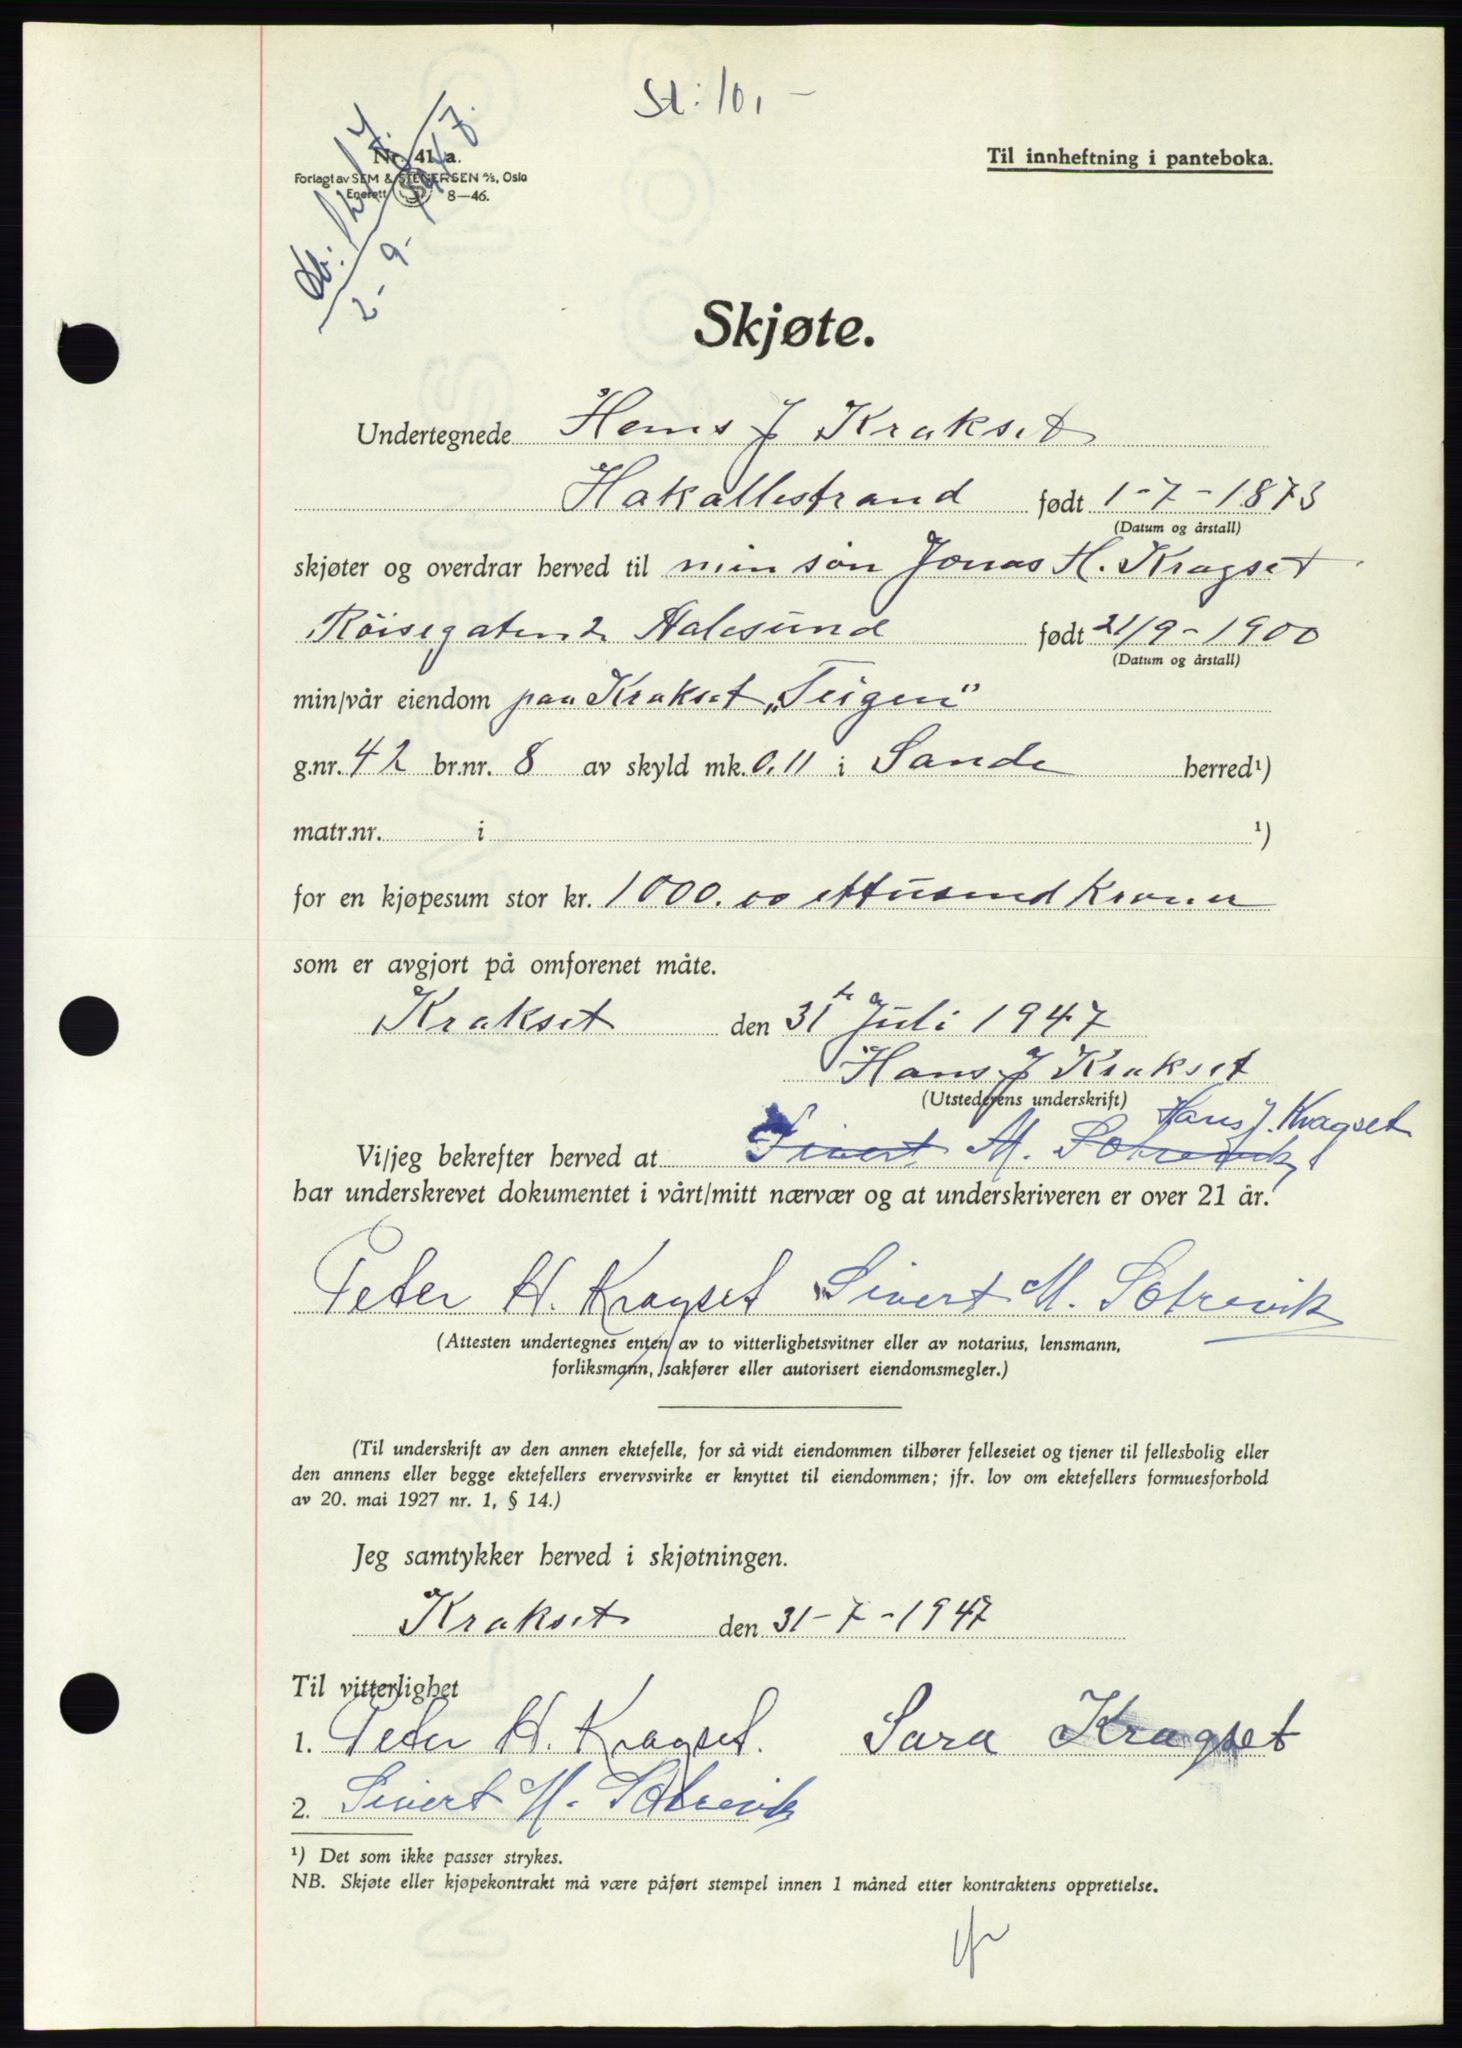 St: 10,-
Nr. 41 a.
Forlagt av SEM & STENERSEN A/S, Oslo
Enerett 8—46.
2-9-1947.
Til innheftning i panteboka.
Skjøte.
Undertegnede Hans J Krakset
Hakallestrand født 1-7-1873
(Datum og årstall)
skjøter og overdrar herved til min søn Jonas H. Kragset
Röisegaten 2 Aalesund født 21/9-1900
(Datum og årstall)
min/vår eiendom paa Krakset „Teigen"
g.nr. 42 br.nr. 8 av skyld mk. 0,11 i Sande herred¹)
matr.nr. i ¹)
for en kjøpesum stor kr. 1000.00 ettusend Kroner
som er avgjort på omforenet måte.
Krakset den 31te Juli 1947
Hans J Krakset
(Utstederens underskrift)
Hans J. Kragset
Vi/jeg bekrefter herved at Sivert M. Sotrevik
har underskrevet dokumentet i vårt/mitt nærvær og at underskriveren er over 21 år.
Peter H. Kragset Sivert M. Sotrevik
(Attesten undertegnes enten av to vitterlighetsvitner eller av notarius, lensmann,
forliksmann, sakfører eller autorisert eiendomsmegler.)
(Til underskrift av den annen ektefelle, for så vidt eiendommen tilhører felleseiet og tjener til fellesbolig eller
den annens eller begge ektefellers ervervsvirke er knyttet til eiendommen; jfr. lov om ektefellers formuesforhold
av 20. mai 1927 nr. 1, § 14.)
Jeg samtykker herved i skjøtningen.
Krakset den 31-7-1947
Til vitterlighet
1. Peter H. Kragset. Sara Kragset
2. Sivert M. Sotrevik
¹) Det som ikke passer strykes.
NB. Skjøte eller kjøpekontrakt må være påført stempel innen 1 måned etter kontraktens opprettelse.